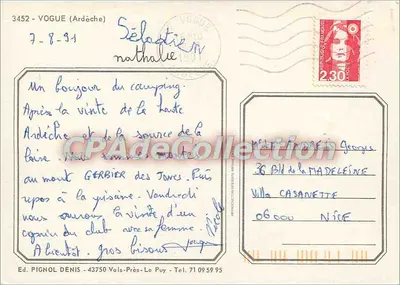 3452 - VOGUE (Ardèche)
7-8-91
Sébastien
nathalie
2.30
Un bonjour du camping.
Après la visite de la haute
Ardèche et de la source de la
loire. Nous sommes montés
au mont GERBIER des JONCS. Puis
repos à la piscine. Vendredi
nous aurons la visite d'un
copain du club avec sa femme.
A bientôt. Gros bisous
Nicole
CPADeCollection
Georges
36 Bld de la MADELEINE
Villa CASANETTE
06000 NICE
Ed. PIGNOL DENIS - 43750 Vals-Près-Le Puy - Tel. 71 09 59 95